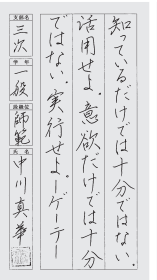 知っているだけでは十分ではない。
活用せよ。意欲だけでは十分
ではない。実行せよ。ーゲーテー
支部名
三次
学年
一般
段級位
師範
氏名
中川真華